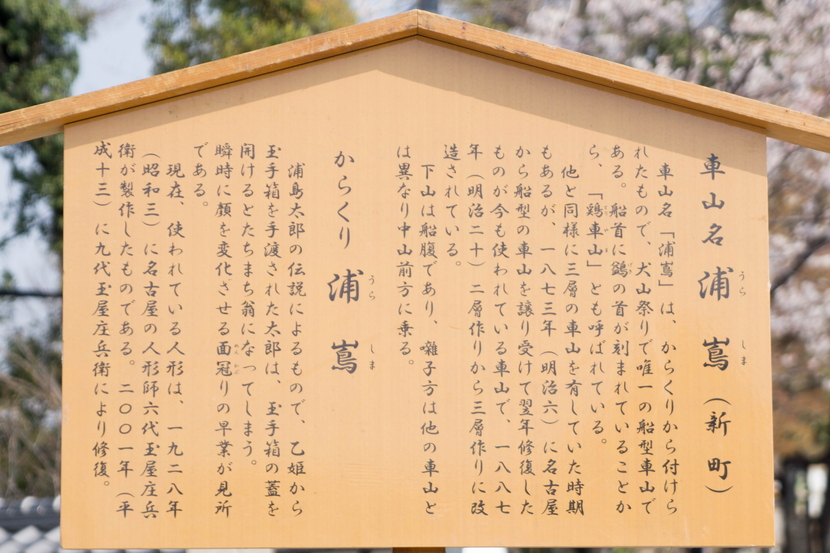 車山名 浦嶌(新町)
うら しま
車山名「浦嶌」は、からくりから付けら
れたもので、犬山祭りで唯一の船型車山で
ある。船首に鷁の首が刻まれていることか
ら、「鶏車山」とも呼ばれている。
他と同様に三層の車山を有していた時期
もあるが、一八七三年(明治六)に名古屋
から船型の車山を譲り受けて翌年修復した
ものが今も使われている車山で、一八八七
年(明治二十)二層作りから三層作りに改
造されている。
下山は船腹であり、囃子方は他の車山と
は異なり中山前方に乗る。
からくり 浦嶌
うら しま
浦島太郎の伝説によるもので、乙姫から
玉手箱を手渡された太郎は、玉手箱の蓋を
開けるとたちまち翁になってしまう。
瞬時に顔を変化させる面冠りの早業が見所
である。
現在、使われている人形は、一九二八年
(昭和三)に名古屋の人形師六代玉屋庄兵
衛が製作したものである。二〇〇一年(平
成十三)に九代玉屋庄兵衛により修復。